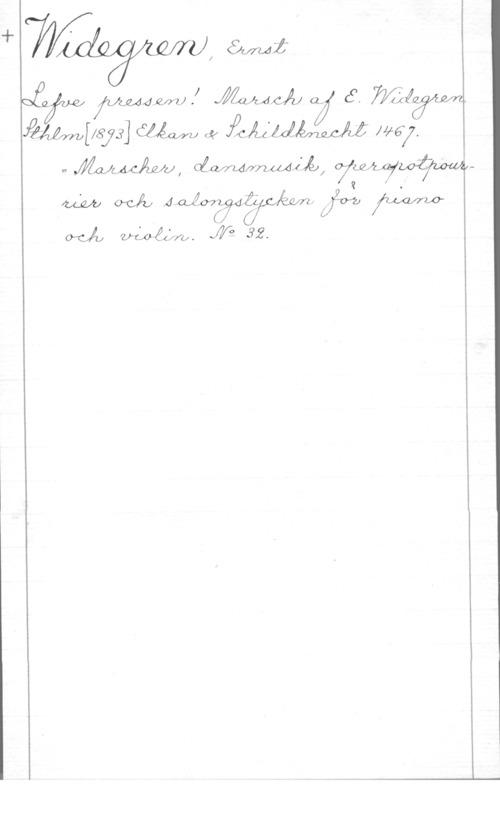 + Widegren, Ernst
Lefve pressen! Marsch af E. Widegren
Sthlm[1893] Elkan & Schildknecht 1467.
= Marscher, dansmusik, operapotpour-
rier och salongstycken för piano
och violin. Nº 32.